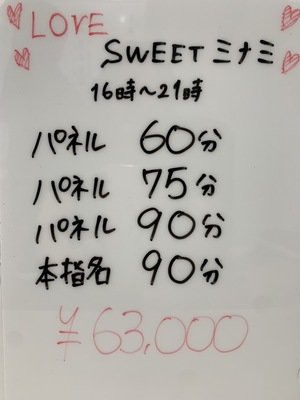 LOVE
SWEETミナミ
16時〜21時
パネル 60分
パネル 75分
パネル 90分
本指名 90分
¥63,000